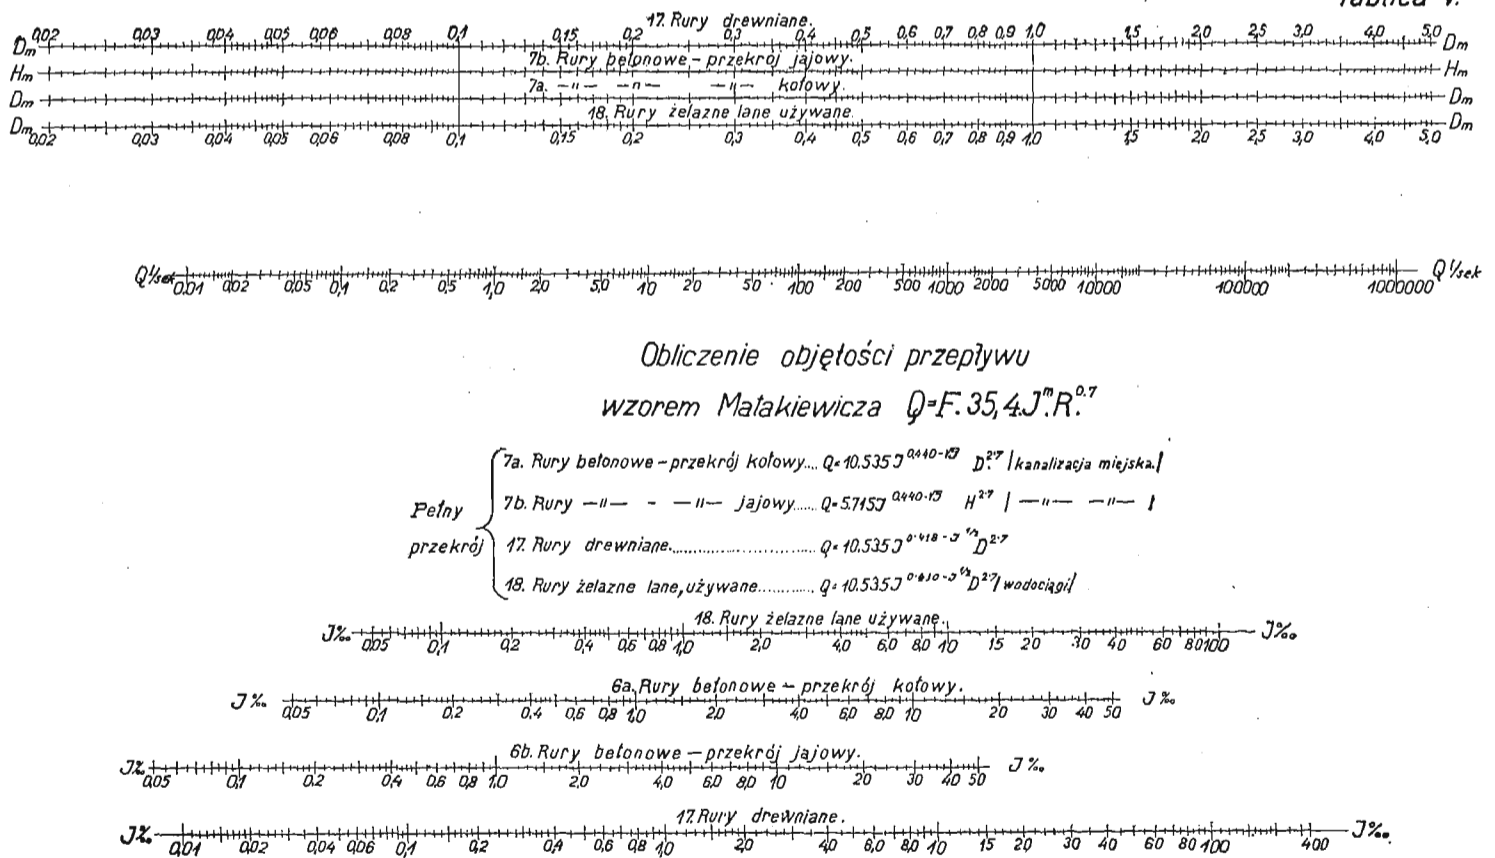 Tablica V.
17. Rury drewniane.
0,02 0,03 0,04 0,05 0,06 0,08 0,1 0,15 0,2 0,3 0,4 0,5 0,6 0,7 0,8 0,9 1,0 1,5 2,0 2,5 3,0 4,0 5,0
Dm Dm
7b. Rury betonowe – przekrój jajowy.
Hm Hm
7a. —"— —"— —"— kołowy.
Dm Dm
18. Rury żelazne lane używane.
Dm Dm
0,02 0,03 0,04 0,05 0,06 0,08 0,1 0,15 0,2 0,3 0,4 0,5 0,6 0,7 0,8 0,9 1,0 1,5 2,0 2,5 3,0 4,0 5,0
Q l/sek Q l/sek
0.01 0,02 0,05 0,1 0,2 0,5 1,0 2,0 5,0 10 20 50 100 200 500 1000 2000 5000 10000 100000 1000000
Obliczenie objętości przepływu
wzorem Matakiewicza Q=F.35,4.J^m.R^0.7
Pełny przekrój
7a. Rury betonowe – przekrój kołowy.... Q=10.535J D^2.7 /kanalizacja miejska./
7b. Rury —"— - —"— jajowy...... Q=5.715J H^2.7 / —"— —"— /
17. Rury drewniane............................ Q=10.535J^0.418-J^1/2 D^2.7
18. Rury żelazne lane, używane............ Q=10.535J D^2.7 /wodociągi/
18. Rury żelazne lane używane.
J‰ J‰
0,05 0,1 0,2 0,4 0,6 0,8 1,0 2,0 4,0 6,0 8,0 10 15 20 30 40 60 80 100
6a. Rury betonowe – przekrój kołowy.
J‰ J‰
0,05 0,1 0,2 0,4 0,6 0,8 1,0 2,0 4,0 6,0 8,0 10 20 30 40 50
6b. Rury betonowe – przekrój jajowy.
J‰ J‰
0,05 0,1 0,2 0,4 0,6 0,8 1,0 2,0 4,0 6,0 8,0 10 20 30 40 50
17. Rury drewniane.
J‰ J‰
0,01 0,02 0,04 0,06 0,1 0,2 0,4 0,6 0,8 1,0 2,0 4,0 6,0 8,0 10 15 20 30 40 60 80 100 400